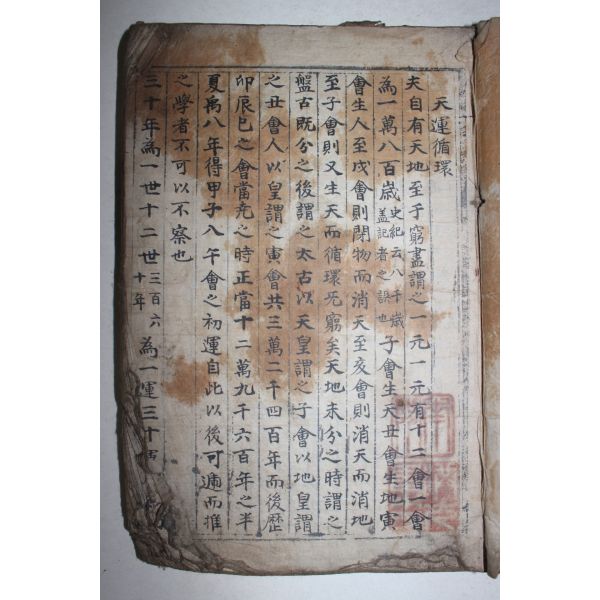 天運循環
夫自有天地至乎窮盡謂之一元一元有十二會一會
為一萬八百歲史紀云八千歲盖記者之誤也子會生天丑會生地寅
會生人至戌會則閉物而消天至亥會則消天而消地
至子會則又生天而循環旡窮矣天地未分之時謂之
盤古既分之後謂之太古以天皇謂之子會以地皇謂
之丑會人以皇謂之寅會共三萬二千四百年而後歷
卯辰巳之會當尭之時正當十二萬九千六百年之半
夏禹八年得甲子入午會之初運自此以後可遁而推
之學者不可以不察也
三十年為一世十二世三百六十年為一運三十